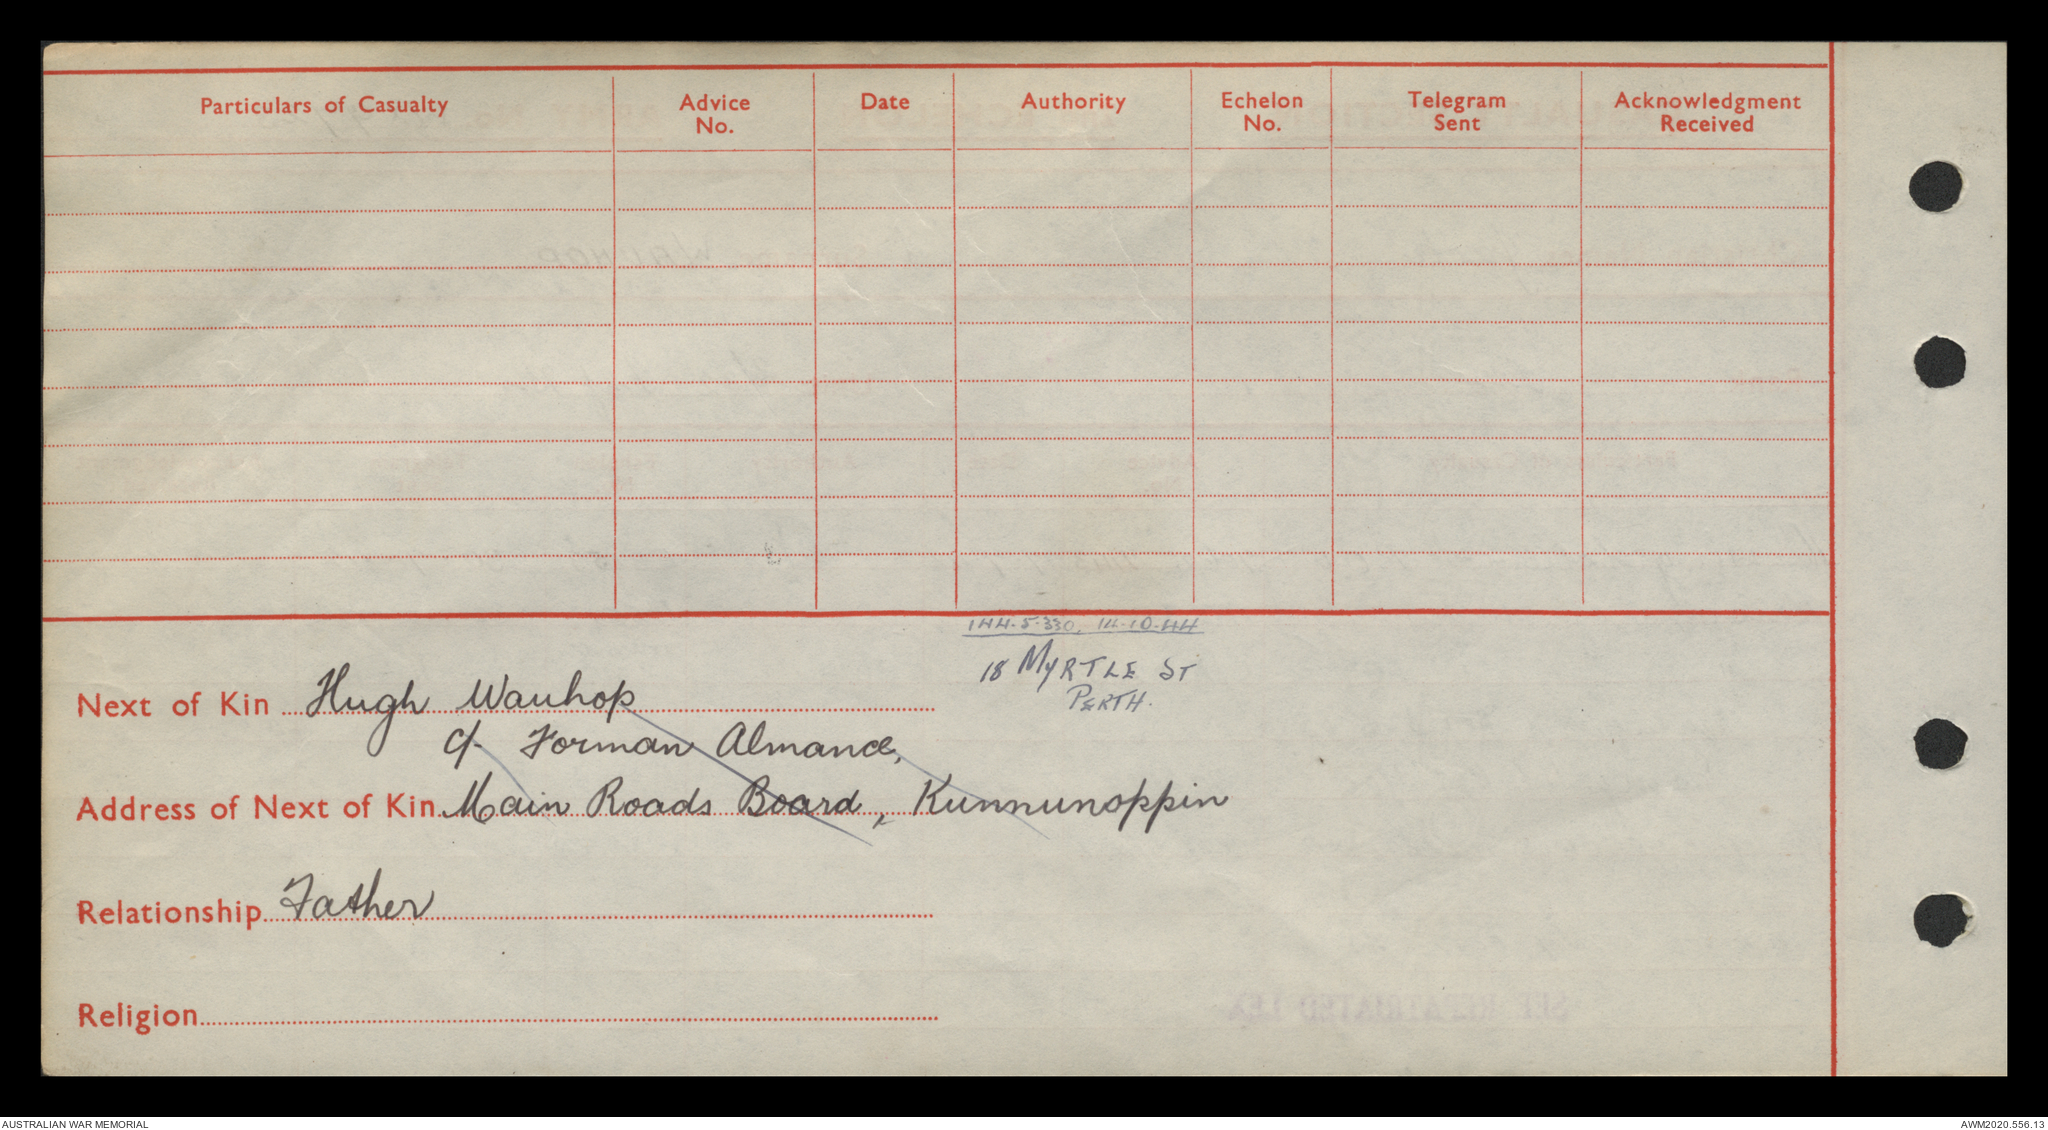 Particulars of Casualty Advice No. Date Authority Echelon No. Telegram Sent Acknowledgment Received
144.5.330, 14.10.44
18 MYRTLE ST
PERTH.
Next of Kin Hugh Wauhop
c/- Forman Almance,
Address of Next of Kin Main Roads Board, Kunnunoppin
Relationship Father
Religion
AUSTRALIAN WAR MEMORIAL
AWM2020.556.13